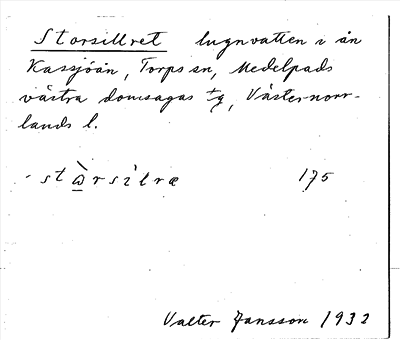 Storsillret lugnvatten i ån
Kassjöån, Torps sn, Medelpads
västra domsagas tg, Västernorr-
lands l.
-stὼrsìlræ 175
Valter Jansson 1932